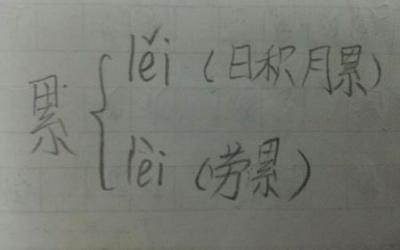 累
lěi（日积月累）
lèi（劳累）